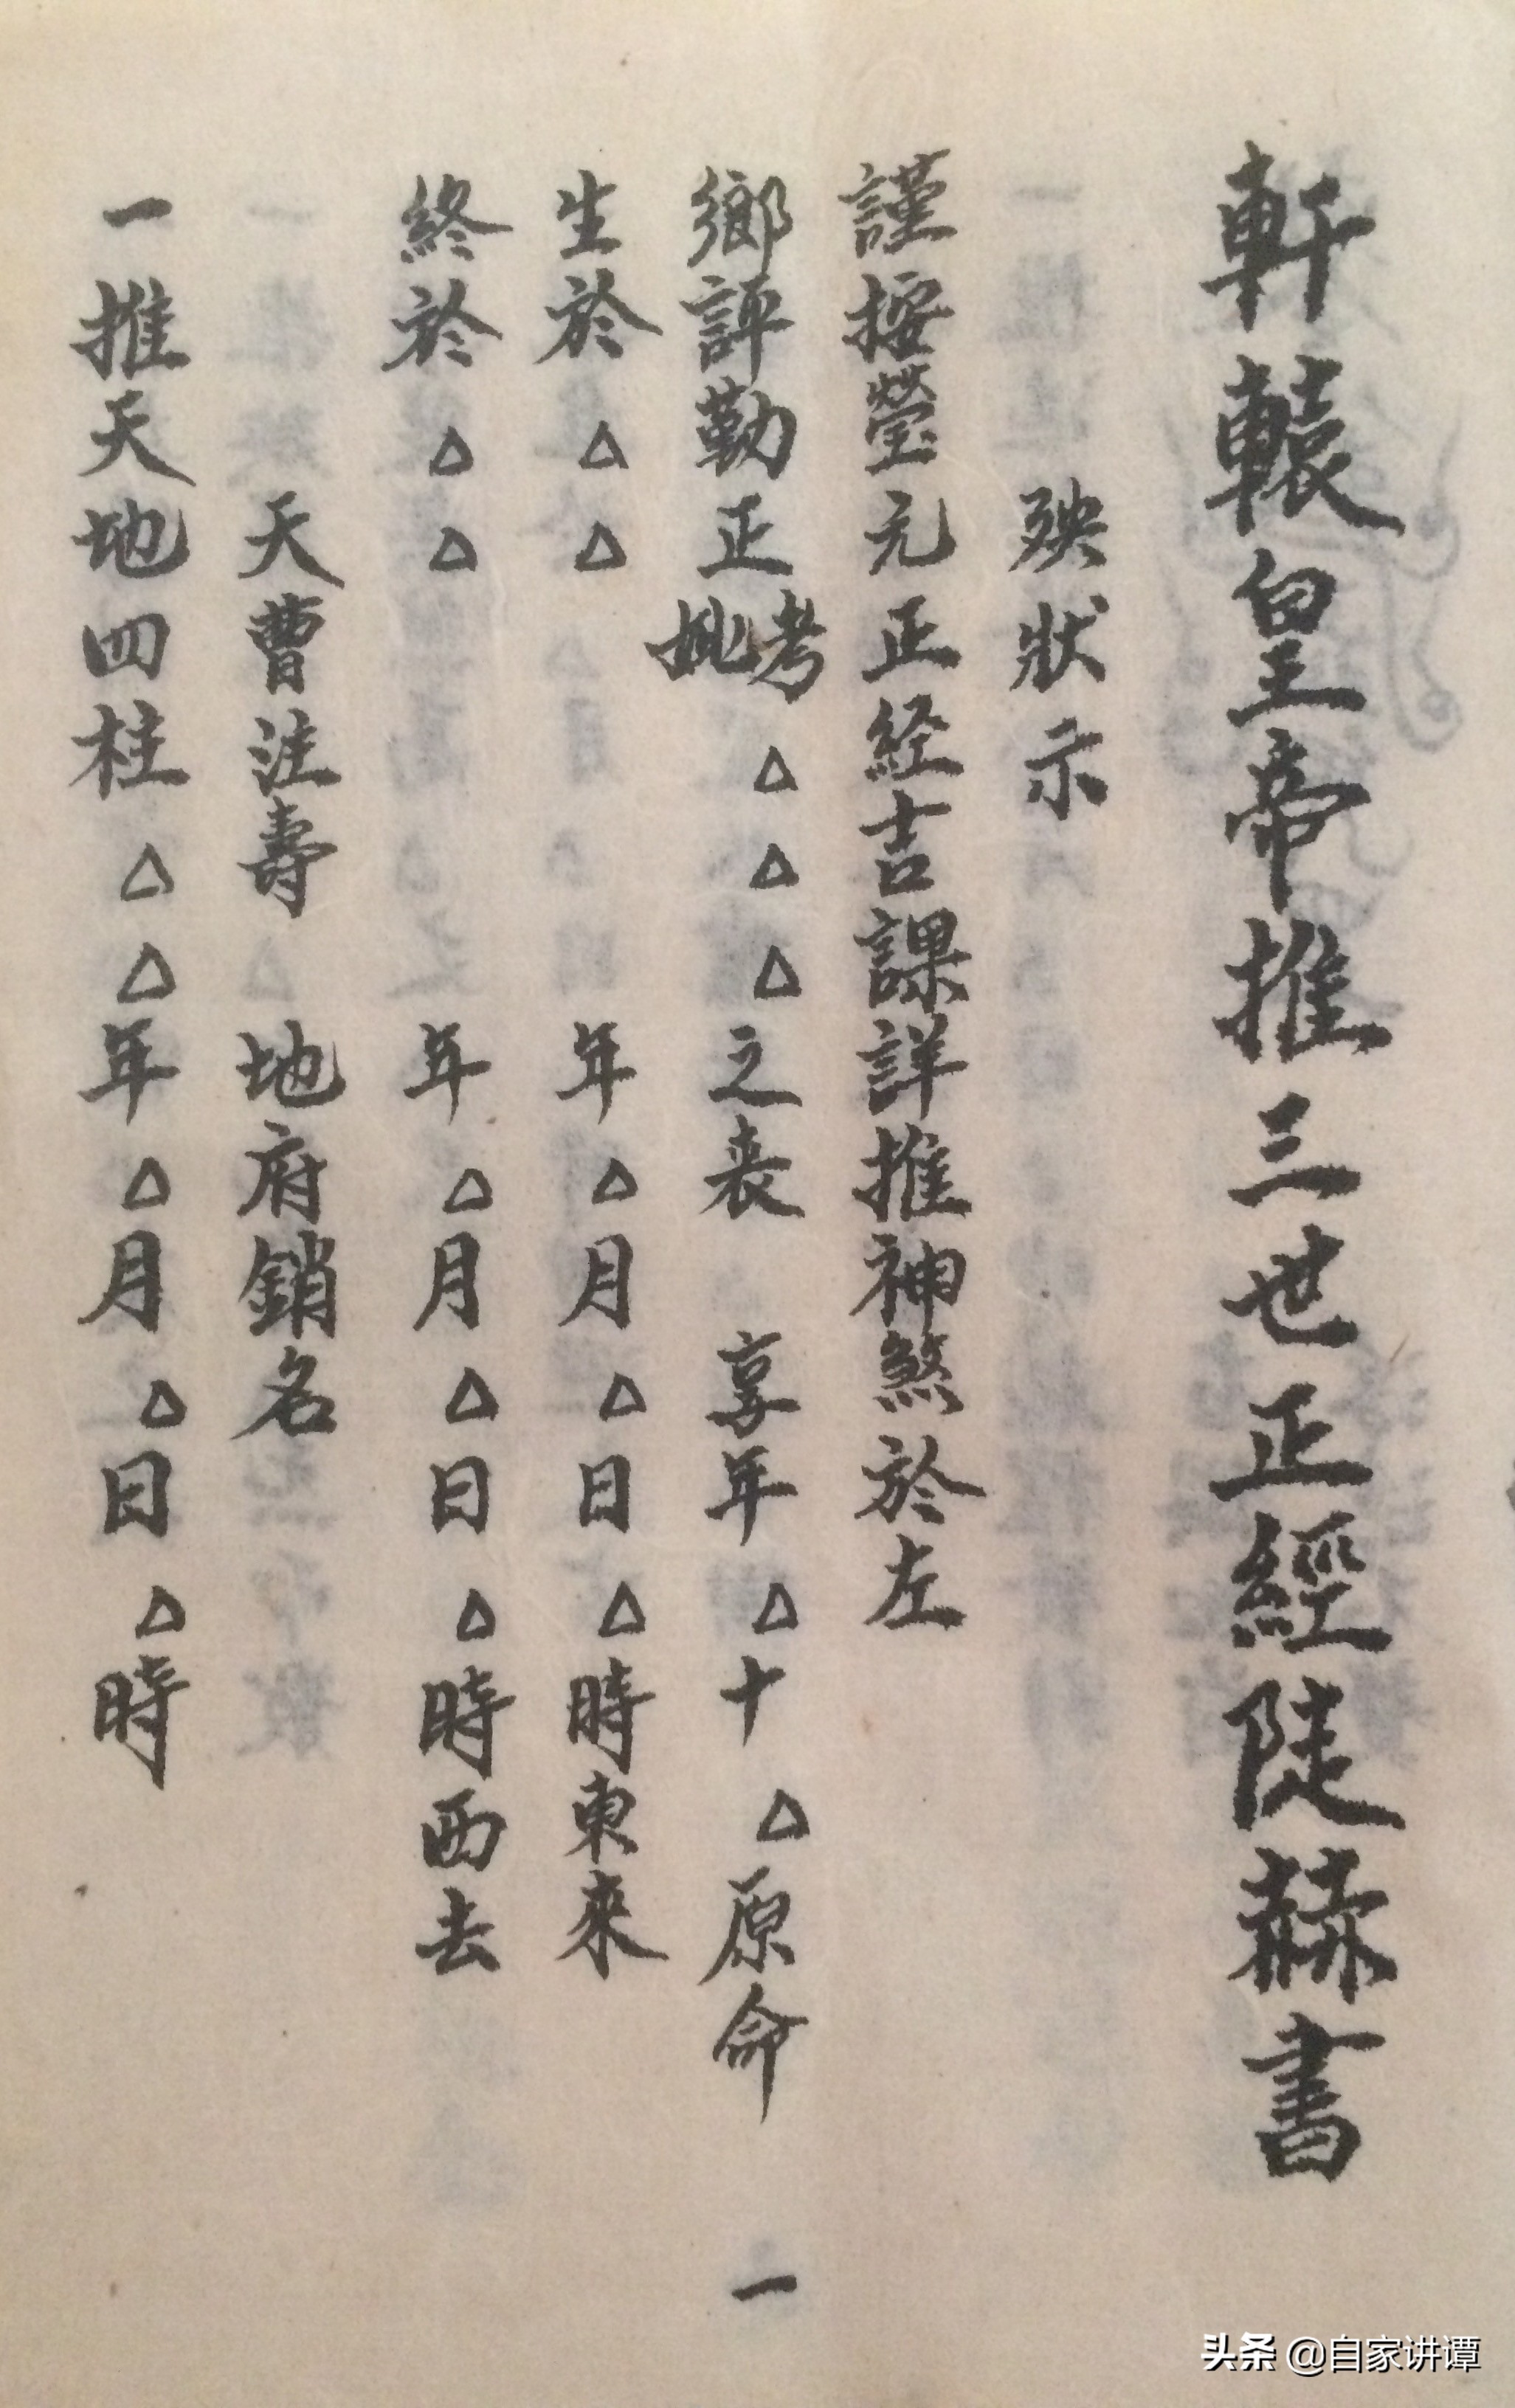 軒轅皇帝推三世正經陡赫書
殃狀示
謹按瑩元正经吉課詳推神煞於左
鄉評勤正考妣△△△之丧 享年△十△原命
生於△△年△月△日△時東來
終於△△年△月△日△時西去
天曹注壽 地府銷名
一推天地四柱△△年△月△日△時
一
头条 @自家讲谭